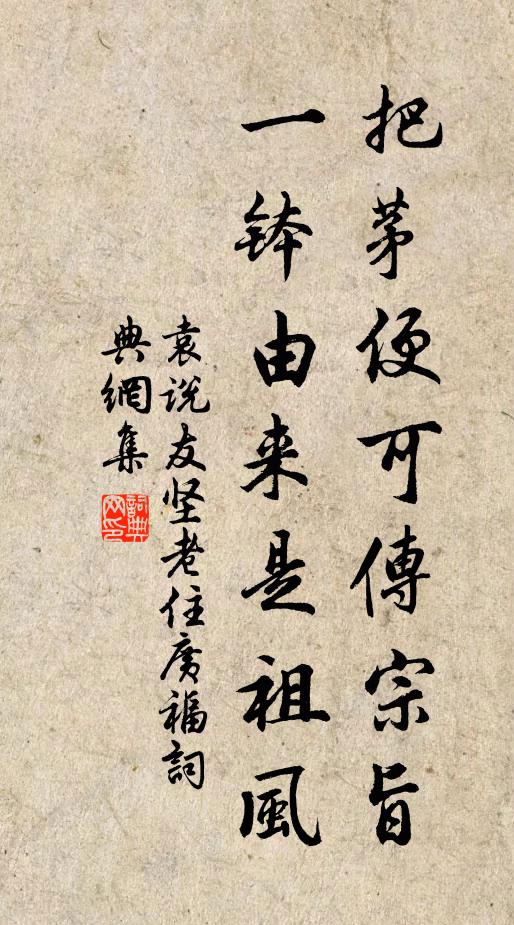 把茅便可傳宗旨
一鉢由来是祖風
袁説友坚老住廣福詞
典網集
詞典网印